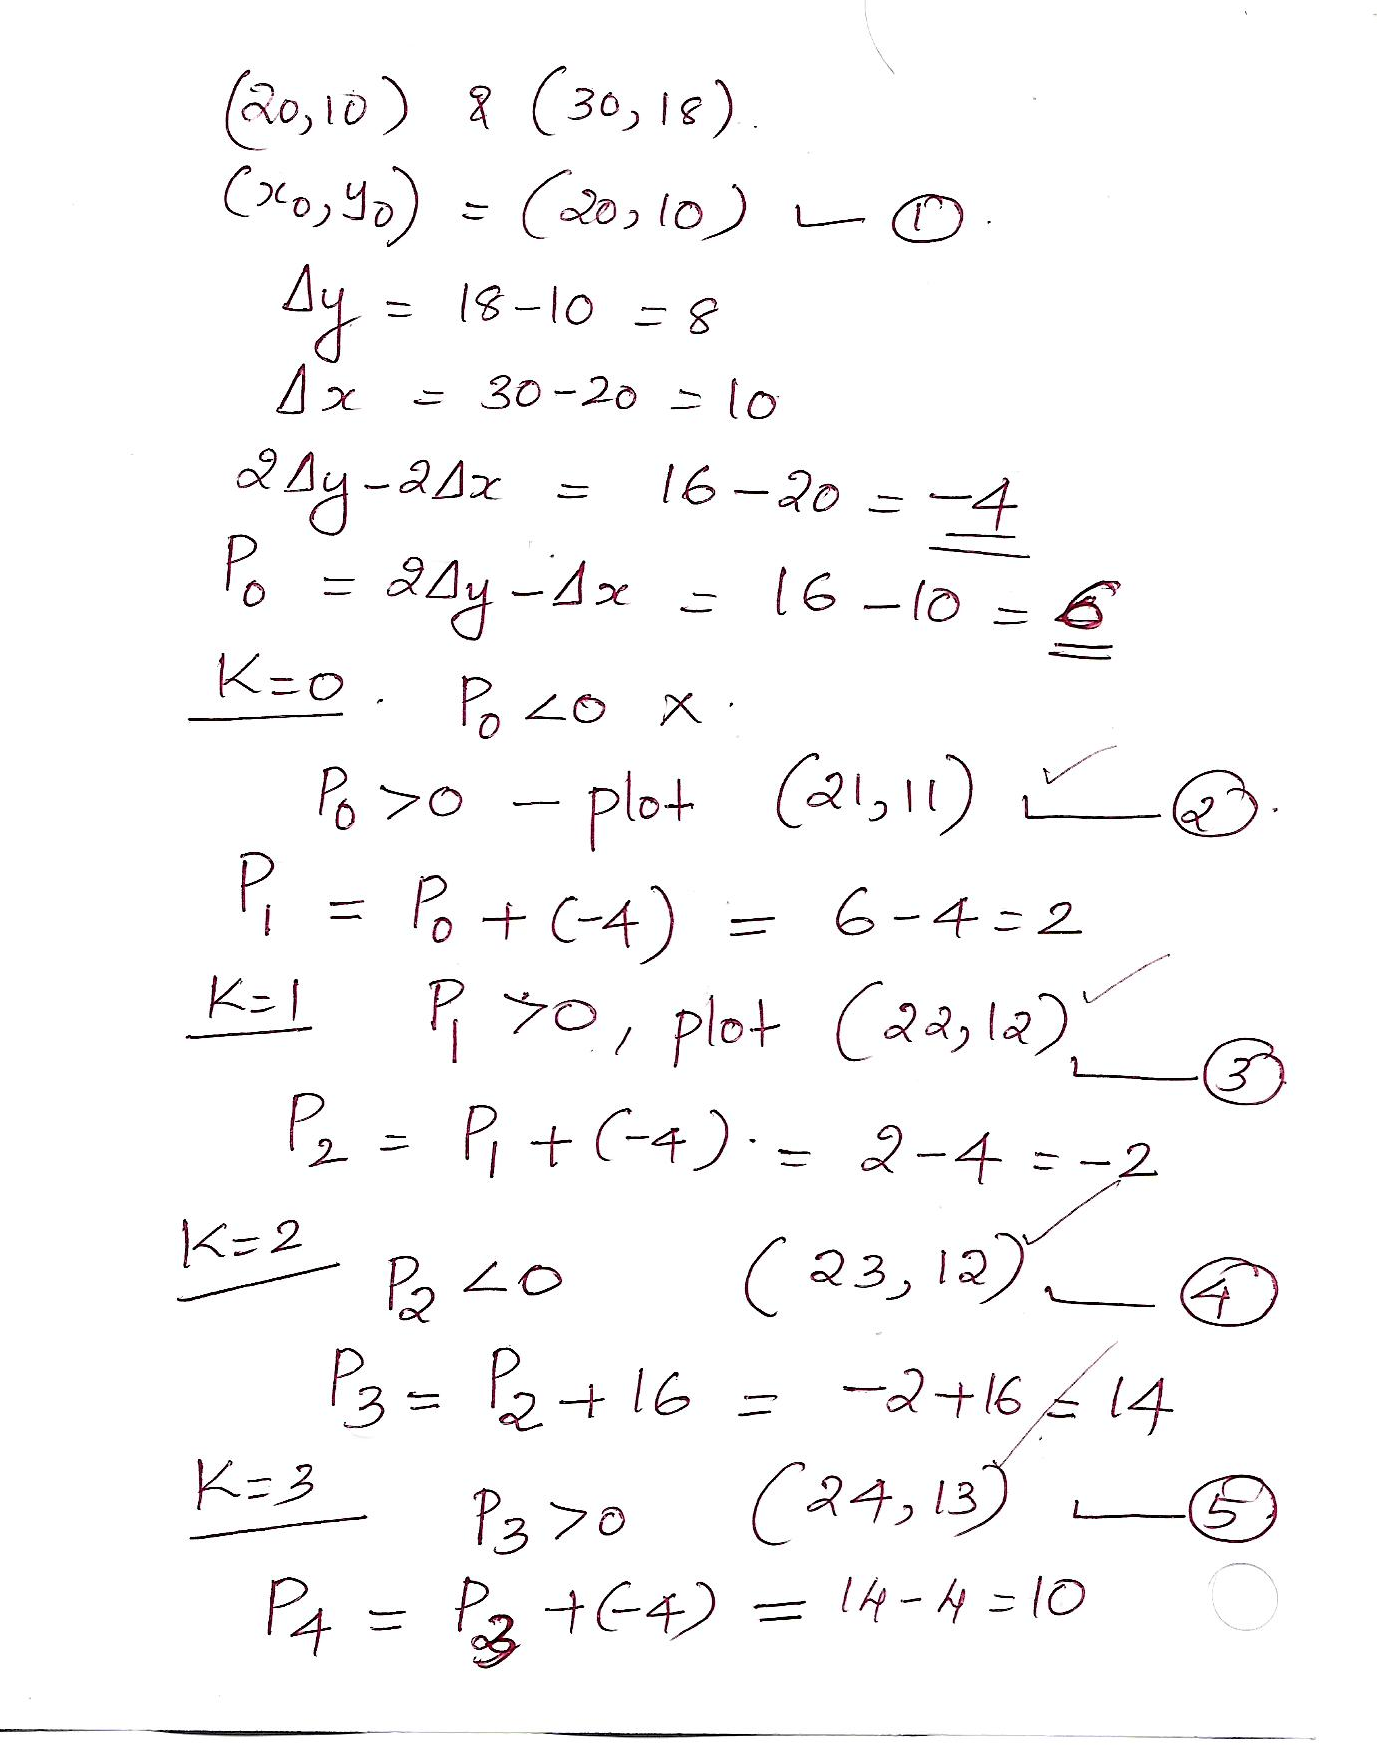 (20,10) & (30,18).
(x₀,y₀) = (20,10) — ①.
Δy = 18-10 = 8
Δx = 30-20 = 10
2Δy-2Δx = 16-20 = -4
P₀ = 2Δy-Δx = 16-10 = 6
K=0. P₀ <0 x.
P₀ >0 - plot (21,11) ✓ — ②.
P₁ = P₀ + (-4) = 6-4=2
K=1 P₁ >0, plot (22,12) ✓ — ③
P₂ = P₁ + (-4). = 2-4 = -2
K=2 P₂ <0 (23,12) ✓ — ④
P₃ = P₂ + 16 = -2+16 = 14
K=3 P₃ >0 (24,13) ✓ — ⑤
P₄ = P₃ + (-4) = 14-4=10